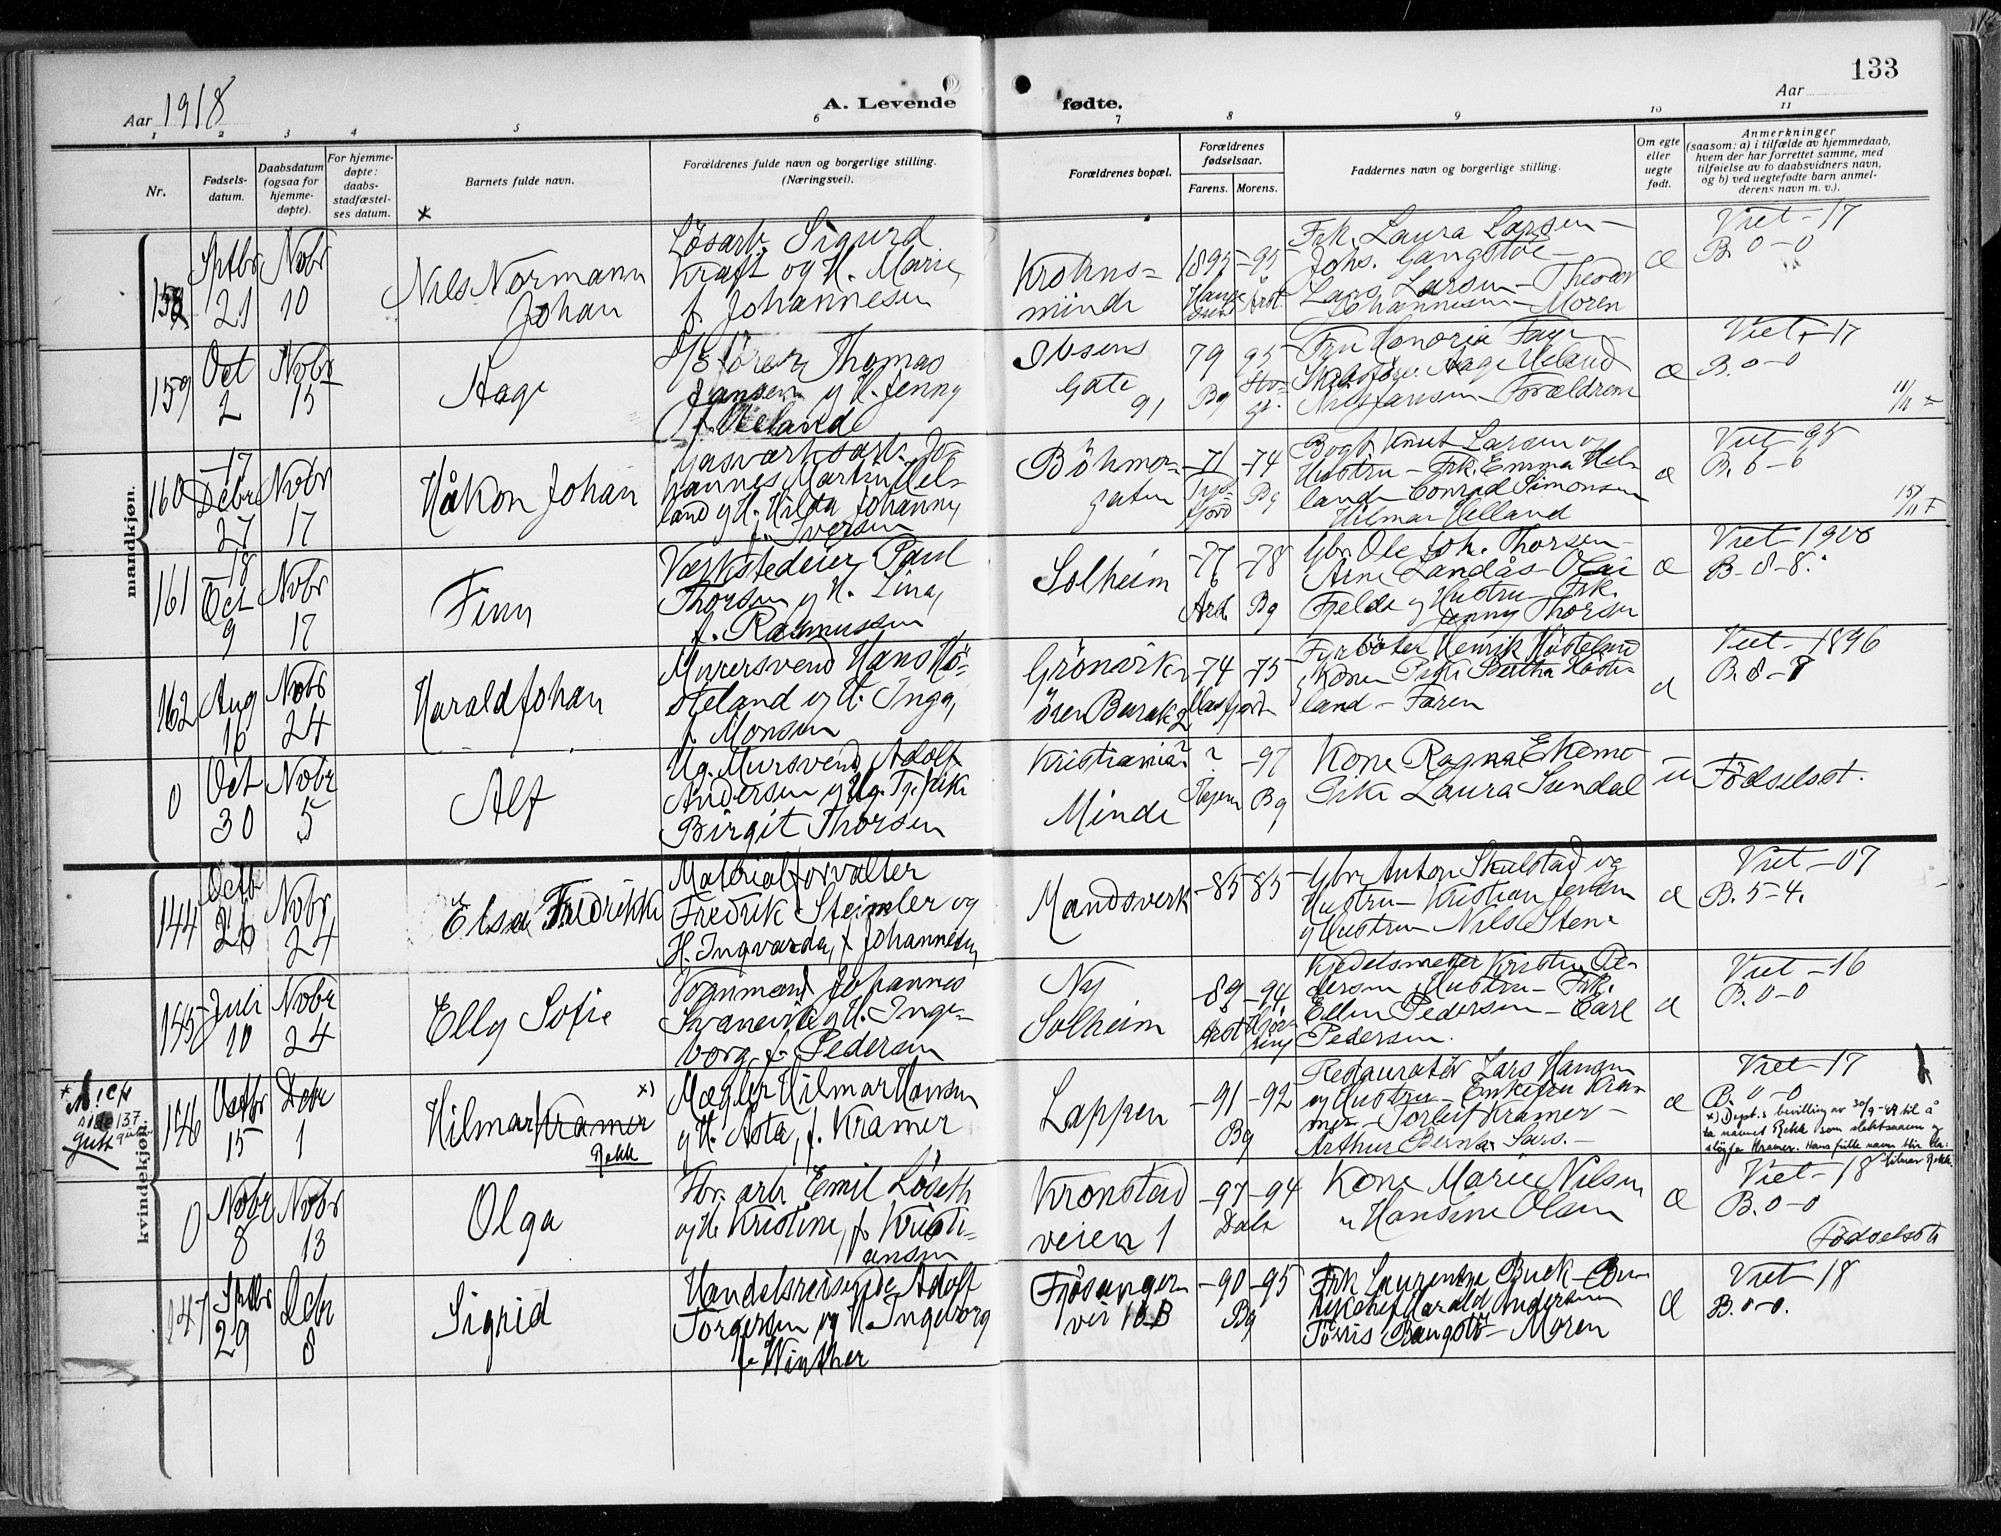 133
Aar 1918
A. Levende fødte.
Aar
1 2 3 4 5 6 7 8 9 10 11
Nr.
Fødsels-
datum.
Daabsdatum
(ogsaa for
hjemme-
døpte).
For hjemme-
døpte:
daabs-
stadfæstel-
ses datum.
Barnets fulde navn.
Forældrenes fulde navn og borgerlige stilling.
(Næringsvei).
Forældrenes bopæl.
Forældrenes
fødselsaar.
Farens. Morens.
Faddernes navn og borgerlige stilling.
Om egte
eller
uegte
født.
Anmerkninger
(saasom: a) i tilfælde av hjemmedaab,
hvem der har forrettet samme, med
tilføielse av to daabsvidners navn,
og b) ved uegtefødte barn anmel-
derens navn m. v.).
mandkjøn.
158
Sptbr
21
Nobr
10
Nils Normann
Johan
Løsarb. Sigurd
Kraft og H. Marie,
f. Johannesen
Krohns-
minde
1895 -95
Frk. Laura Larsen -
Johs. Gangstøe -
Lars Larsen - Theodor
Johannesen - Moren
æ
Viet - 17
B. 0 - 0
159
Oct
2
Nobr
15
Aage
Thomas
Jansen og H. Jenny
f. Meland
Ibsens
Gate
91
79 95
Bg
Fru Honoria
Aage Meland
Forældrene
æ
Viet - 17
B. 0 - 0
160
-17
Debr
27
Nobr
17
Håkon Johan
Gasværksarb. Jo-
hannes Martin Hel-
land og H. Hilda Johanny
f. Iversen
Böhmer-
gaten
-71 -74
Bg
Bogb. Knut Larsen og
Hustru - Frk. Emma Hel-
land - Conrad Simonsen
Hilmar Helland
æ
Viet - 95
B. 6 - 6
161
18
Oct
9
Nobr
17
Finn
Værkstedeier Paul
Thorsen og H. Lina,
f. Rasmussen
Solheim
-77 -78
Ard. Bg
Gbr. Ole Joh. Thorsen -
Arne Landås - Olai
Fjelde og Hustru - Frk.
Jenny Thorsen
æ
Viet 1900
B. - 8 - 8.
162
Aug
16
Nobr
24
Harald Johan
Murersvend Hans Hö-
steland og H. Inga,
f. Monsen
Grönvik-
ören Barak 2
-74 -75
Masfjorden
Fyrbøter Henrik Høsteland
Kone Pike Bertha Høste-
land - Faren
æ
Viet - 1896
B. 8 - 8
0
Oct
30
Nobr
5
Alf
Ug. Mursvend Adolf
Andersen og Ug. Tj. pike
Birgit Thorsen
Kristiania?
Minde
? -97
Bg
Kone Ragna Ekemo
Pike Laura Sundal
u
Fødselsst.
kvindekjøn.
144
Octbr
26
Nobr
24
Elsa Fredrikke
Materialforvalter
Fredrik Steimler og
H. Ingvarda, f. Johannesen
Mandsverk
-85 85
Gbr. Anton Skulstad og
Hustru - Kristian Jensen
og Hustru Nilsestene
æ
Viet - 07
B. 5 - 4.
145
Juli
10
Nobr
24
Elly Sofie
Formand Johannes
Svanevik og H. Inge-
borg, f. Pedersen
Ny
Solheim
-89 -94
Kjedelsmed Kristen Pe-
dersen Hustru - Frk.
Ellen Pedersen - Earl
Pedersen.
æ
Viet - 16
B. 0 - 0
side 137
gutt
146
Octbr
15
Debr
1
Hilmar Kramer x)
Rekk
Mægler Hilmar Hansen
og H. Asta, f. Kramer
Lappen
-91 -92
Bg
Restauratør Lars Hansen
og Hustru - Enkefru Kra-
mer - Torleif Kramer -
æ
Viet - 17
B. 0 - 0
x) Dept.s bevilling av 30/9-49 til å
ta navnet Rekk som slektsnavn og
sløyfe Kramer. Hans fulle navn blir da:
Hilmar Rekk.
0
Nobr
8
Nobr
13
Olga
Fbr. arb. Emil Lødeth
og H. Kristine, f. Kristi-
ansen
Kronstad
veien 1
-97 -94
Dale
Kone Marie Nilsen
" Hansine Olsen
æ
Viet - 18
B. 0 - 0
Fødselsst.
147
Sptbr
29
Debr
8
Sigrid
Handelsreisende Adolf
Torgersen og H. Ingeborg
f. Winther
Fjösanger
vei 16B
-90 -95
Bg
Frk. Laurentze Buck
Harald Andersen
Tørris Bangstö - Moren
æ
Viet - 18
B. 0 - 0.